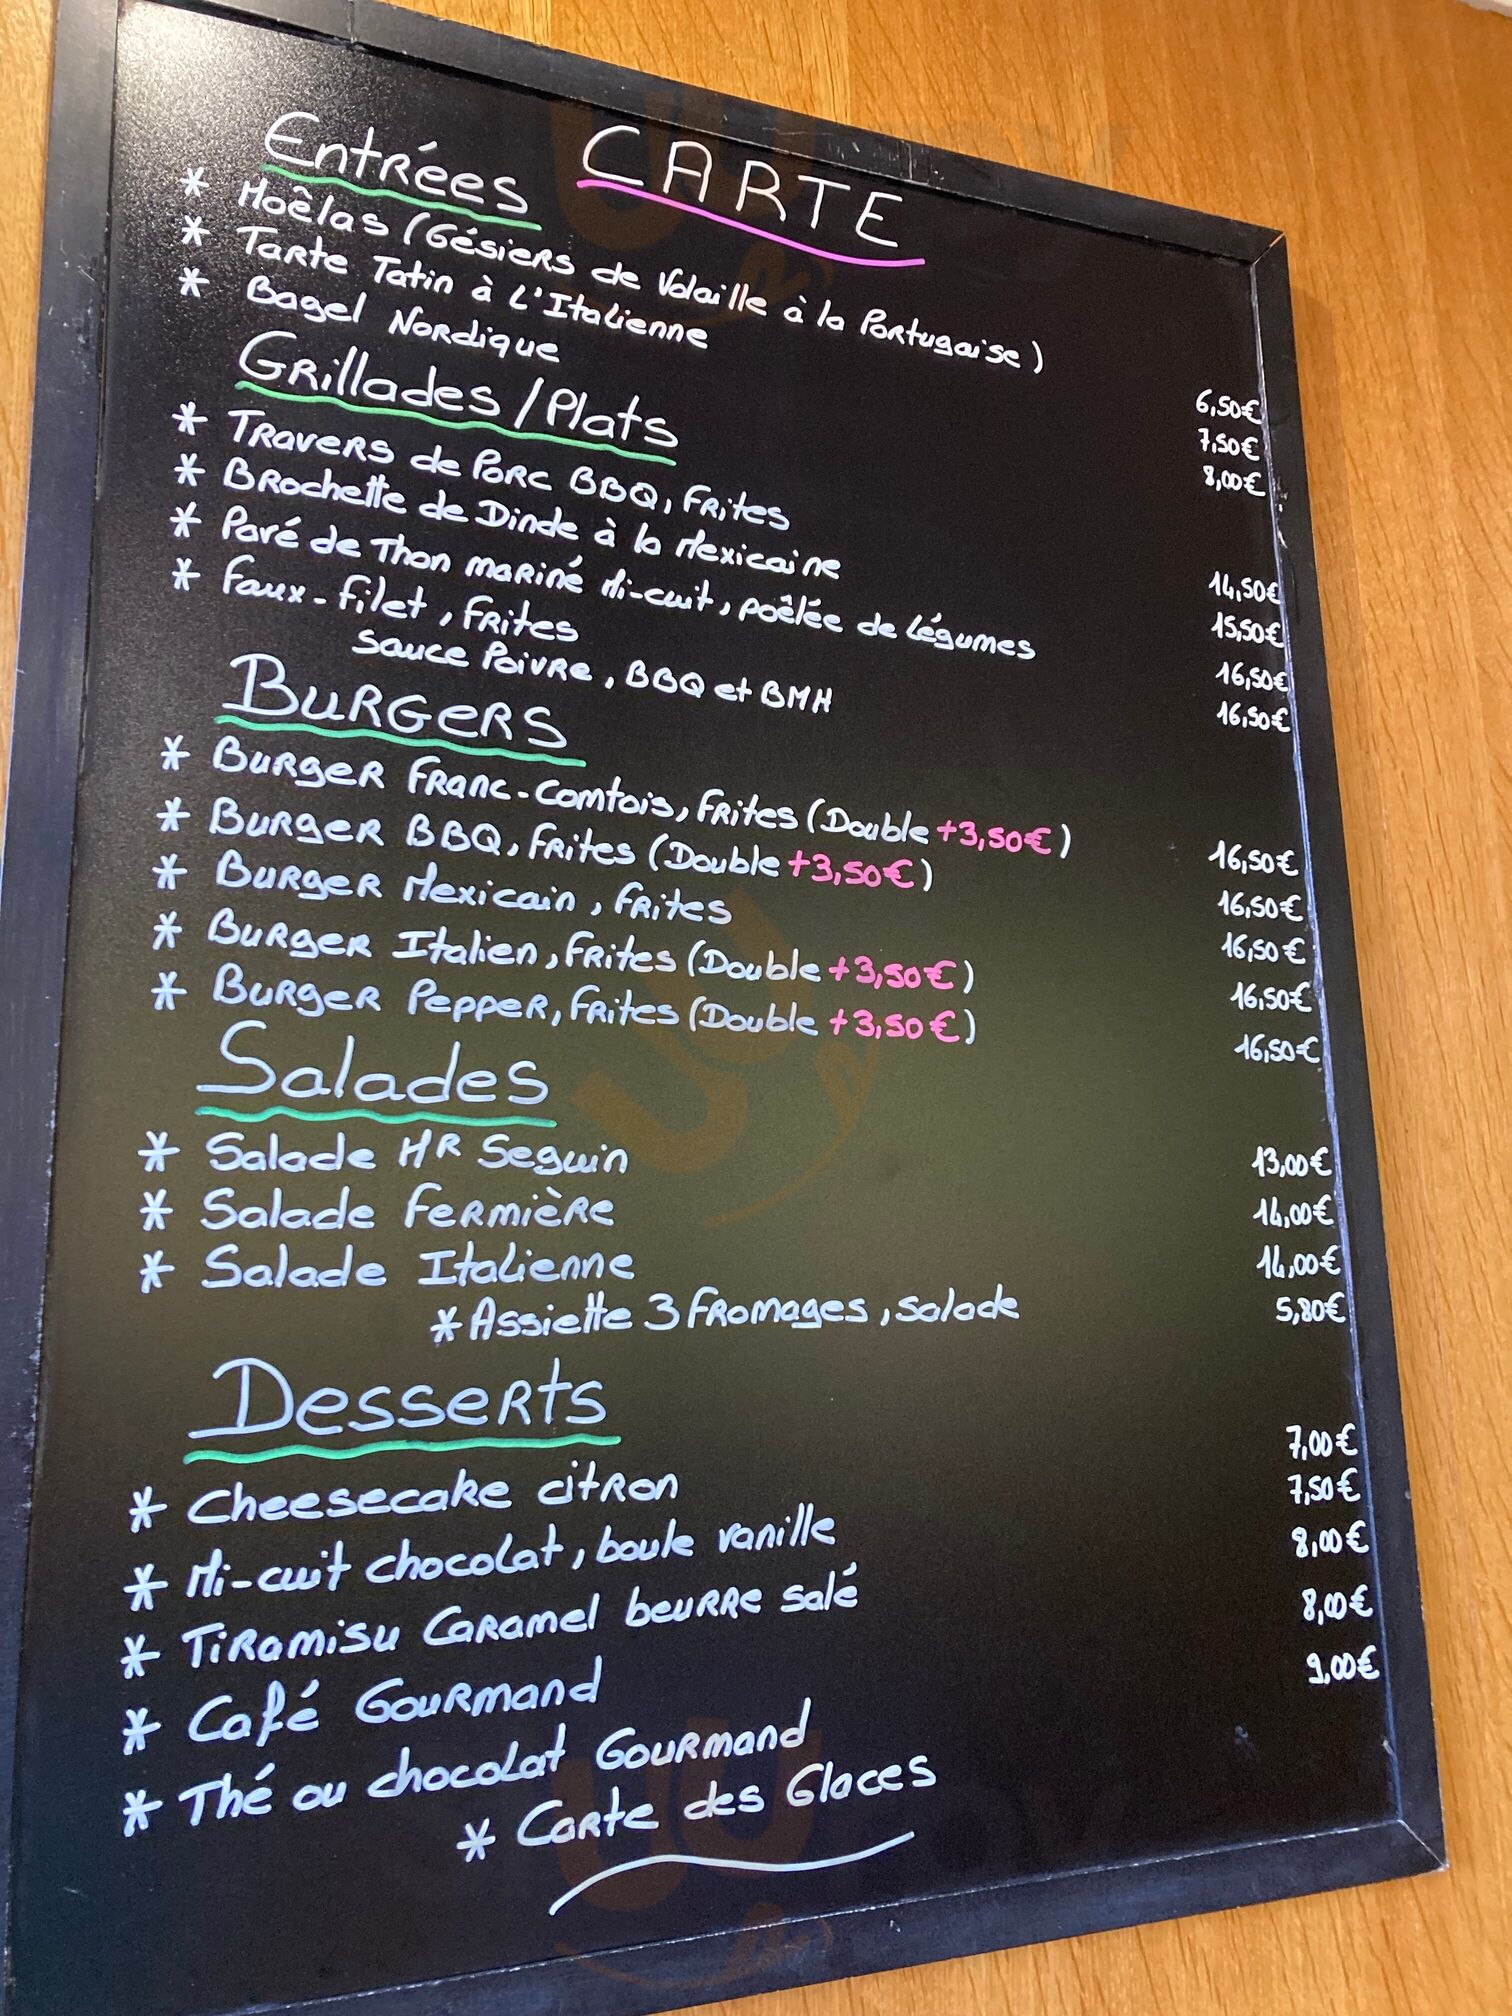 CARTE
Entrées
* Moêlas (Gésiers de Volaille à la Portugaise) 6,50€
* Tarte Tatin à L'Italienne 7,50€
* Bagel Nordique 8,00€
Grillades/Plats
* Travers de Porc BBQ, Frites 14,50€
* Brochette de Dinde à la Mexicaine 15,50€
* Pavé de Thon mariné Mi-cuit, poêlée de Légumes 16,50€
* Faux-Filet, Frites 16,50€
Sauce Poivre, BBQ et BMH
Burgers
* Burger Franc-Comtois, Frites (Double +3,50€) 16,50€
* Burger BBQ, Frites (Double +3,50€) 16,50€
* Burger Mexicain, Frites 16,50€
* Burger Italien, Frites (Double +3,50€) 16,50€
* Burger Pepper, Frites (Double +3,50€) 16,50€
Salades
* Salade MR Seguin 13,00€
* Salade Fermière 14,00€
* Salade Italienne 14,00€
* Assiette 3 Fromages, Salade 5,80€
Desserts
* Cheesecake citron 7,00€
* Mi-cuit chocolat, boule vanille 7,50€
* Tiramisu Caramel beurre salé 8,00€
* Café Gourmand 8,00€
* Thé ou chocolat Gourmand 9,00€
* Carte des Glaces